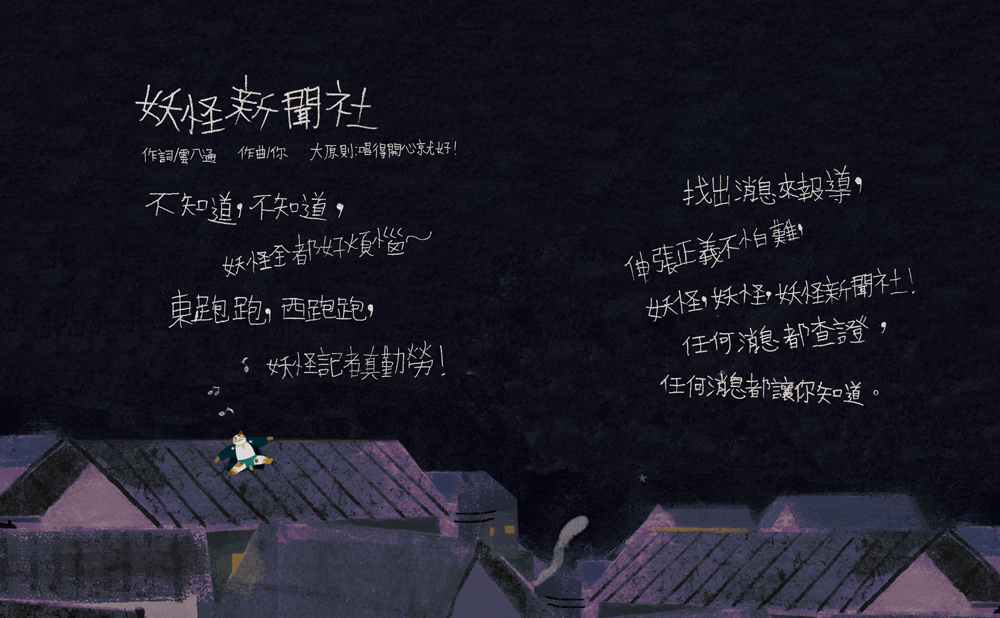 妖怪新聞社
作詞/雲八通 作曲/你 大原則:唱得開心就好!
不知道,不知道,
妖怪全都好煩惱~
東跑跑,西跑跑,
妖怪記者真勤勞!
找出消息來報導,
伸張正義不怕難,
妖怪,妖怪,妖怪新聞社!
任何消息都查證,
任何消息都讓你知道。